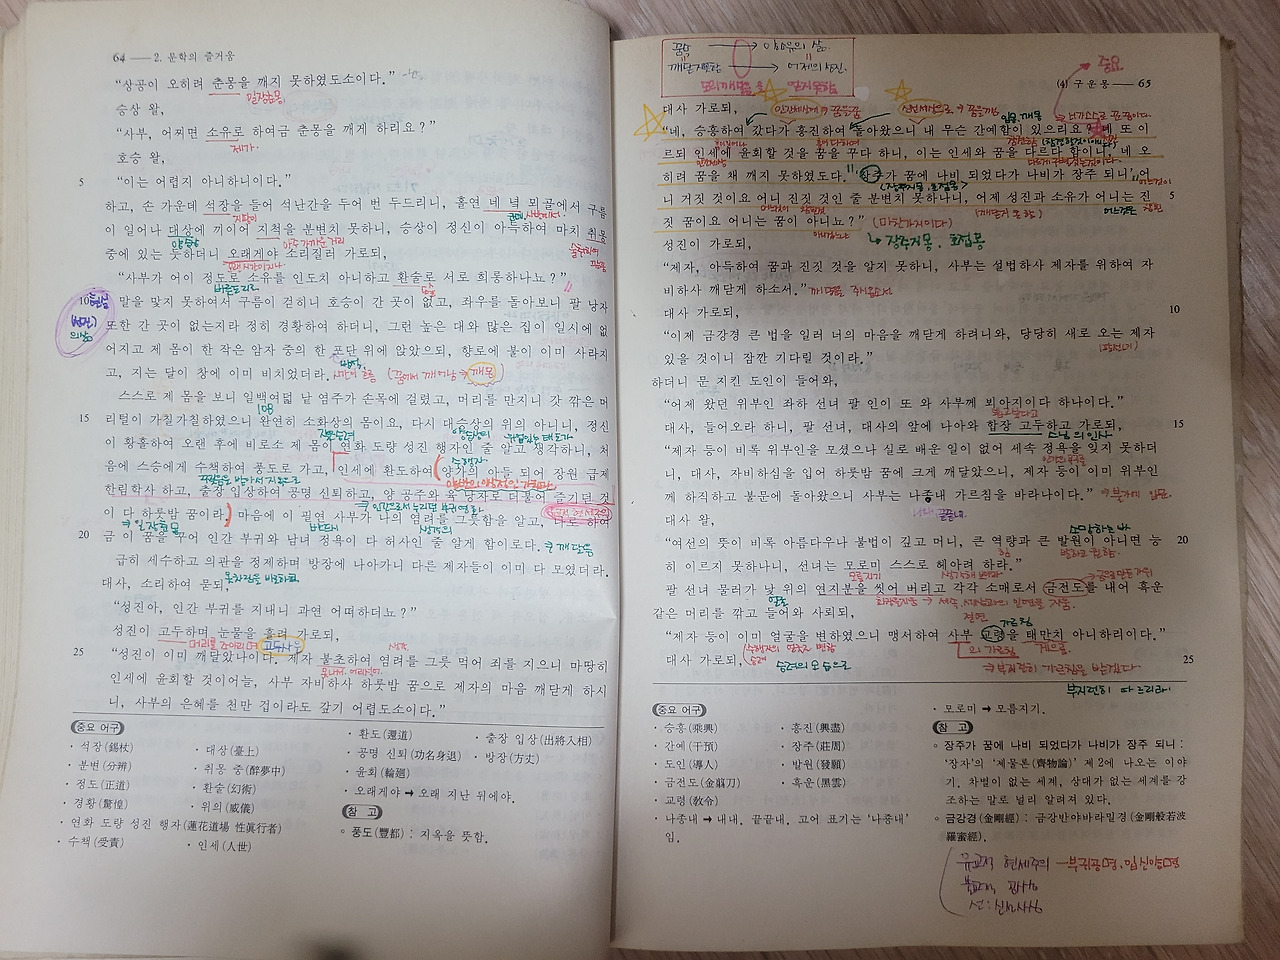 64 — 2. 문학의 즐거움
“상공이 오히려 춘몽을 깨지 못하였도소이다.”
일장춘몽
승상 왈,
“사부, 어찌면 소유로 하여금 춘몽을 깨게 하리요?”
제가
호승 왈,
5 “이는 어렵지 아니하니이다.”
하고, 손 가운데 석장을 들어 석난간을 두어 번 두드리니, 홀연 네 녘 뫼골에서 구름
지팡이
이 일어나 대상에 끼이어 지척을 분변치 못하니, 승상이 정신이 아득하여 마치 취몽
아주 가까운 거리
중에 있는 듯하더니 오래게야 소리질러 가로되,
“사부가 어이 정도로 소유를 인도치 아니하고 환술로 서로 희롱하나뇨?”
바른도리로
10 말을 맟지 못하여서 구름이 걷히니 호승이 간 곳이 없고, 좌우를 돌아보니 팔 낭자
또한 간 곳이 없는지라 정히 경황하여 하더니, 그런 높은 대와 많은 집이 일시에 없
어지고 제 몸이 한 작은 암자 중의 한 포단 위에 앉았으되, 향로에 불이 이미 사라지
방석
고, 지는 달이 창에 이미 비치었더라.
시간의 흐름 (꿈에서 깨어남 → 깨몽)
스스로 제 몸을 보니 일백여덟 낱 염주가 손목에 걸렸고, 머리를 만지니 갓 깎은 머
108
15 리털이 가칠가칠하였으니 완연히 소화상의 몸이요, 다시 대승상의 위의 아니니, 정신
이 황홀하여 오랜 후에 비로소 제 몸이 연화 도량 성진 행자인 줄 알고 생각하니, 처
수행자
음에 스승에게 수책하여 풍도로 가고, 인세에 환도하여 양가의 아들 되어 장원 급제
한림학사 하고, 출장 입상하여 공명 신퇴하고, 양 공주와 육 낭자로 더불어 즐기던 것
이 다 하룻밤 꿈이라. 마음에 이 필연 사부가 나의 염려를 그릇함을 알고, 나로 하여
일장춘몽
반드시
생각의
20 금 이 꿈을 꾸어 인간 부귀와 남녀 정욕이 다 허사인 줄 알게 함이로다.
→ 깨달음
급히 세수하고 의관을 정제하며 방장에 나아가니 다른 제자들이 이미 다 모였더라.
대사, 소리하여 묻되,
“성진아, 인간 부귀를 지내니 과연 어떠하더뇨?”
성진이 고두하며 눈물을 흘려 가로되,
머리를 조아리며 고두사은
25 “성진이 이미 깨달았나이다. 제자 불초하여 염려를 그릇 먹어 죄를 지으니 마땅히
생각
인세에 윤회할 것이어늘, 사부 자비하사 하룻밤 꿈으로 제자의 마음 깨닫게 하시
니, 사부의 은혜를 천만 겁이라도 갚기 어렵도소이다.”
중요 어구
· 석장(錫杖)
· 분변(分辨)
· 정도(正道)
· 경황(驚惶)
· 연화 도량 성진 행자(蓮花道場 性眞行者)
· 수책(受責)
· 대상(臺上)
· 취몽 중(醉夢中)
· 환술(幻術)
· 위의(威儀)
· 인세(人世)
· 환도(還道)
· 출장 입상(出將入相)
· 공명 신퇴(功名身退)
· 방장(方丈)
· 윤회(輪廻)
· 오래게야 → 오래 지난 뒤에야.
참 고
○ 풍도(豐都) : 지옥을 뜻함.
꿈속 → 양소유의 삶
깨닫지못함 → 어제의 성진
중요
(4) 구 운 몽 — 65
대사 가로되,
“네, 승흥하여 갔다가 흥진하여 돌아왔으니 내 무슨 간예함이 있으리요? 네 또 이
르되 인세에 윤회할 것을 꿈을 꾸다 하니, 이는 인세와 꿈을 다르다 함이니, 네 오
히려 꿈을 채 깨지 못하였도다. 장주가 꿈에 나비 되었다가 나비가 장주 되니, 어
5 니 거짓 것이요 어니 진짓 것인 줄 분변치 못하나니, 어제 성진과 소유가 어니는 진
짓 꿈이요 어니는 꿈이 아니뇨?”
(마찬가지이다)
장주지몽, 호접몽
성진이 가로되,
“제자, 아득하여 꿈과 진짓 것을 알지 못하니, 사부는 설법하사 제자를 위하여 자
비하사 깨닫게 하소서.”
깨달음을 주시옵소서
10 대사 가로되,
“이제 금강경 큰 법을 일러 너의 마음을 깨닫게 하려니와, 당당히 새로 오는 제자
있을 것이니 잠깐 기다릴 것이라.”
(팔선녀)
하더니 문 지킨 도인이 들어와,
“어제 왔던 위부인 좌하 선녀 팔 인이 또 와 사부께 뵈아지다 하나이다.”
15 대사, 들어오라 하니, 팔 선녀, 대사의 앞에 나아와 합장 고두하고 가로되,
스님의 인사
“제자 등이 비록 위부인을 모셨으나 실로 배운 일이 없어 세속 정욕을 잊지 못하더
니, 대사, 자비하심을 입어 하룻밤 꿈에 크게 깨달았으니, 제자 등이 이미 위부인
께 하직하고 불문에 돌아왔으니 사부는 나종내 가르침을 바라나이다.”
내내 끝끝내
대사 왈,
20 “여선의 뜻이 비록 아름다우나 불법이 깊고 머니, 큰 역량과 큰 발원이 아니면 능
소망하는 바
히 이르지 못하나니, 선녀는 모로미 스스로 헤아려 하라.”
모름지기
팔 선녀 물러가 낯 위의 연지분을 씻어 버리고 각각 소매로서 금전도를 내어 흑운
같은 머리를 깎고 들어와 사뢰되,
“제자 등이 이미 얼굴을 변하였으니 맹서하여 사부 교령을 태만치 아니하리이다.”
가르침
게으름
승려의 모습으로
→ 부지런히 가르침을 받겠다
25 대사 가로되,
부지런히 따르리라
중요 어구
· 승흥(乘興)
· 간예(干預)
· 도인(導人)
· 금전도(金剪刀)
· 교령(敎令)
· 흥진(興盡)
· 장주(莊周)
· 발원(發願)
· 흑운(黑雲)
· 나종내 → 내내. 끝끝내. 고어 표기는 ‘나종내’
임.
· 모로미 → 모름지기.
참 고
○ 장주가 꿈에 나비 되었다가 나비가 장주 되니 :
‘장자’의 ‘제물론(齊物論)’ 제2에 나오는 이야
기. 차별이 없는 세계, 상대가 없는 세계를 강
조하는 말로 널리 알려져 있다.
○ 금강경(金剛經) : 금강반야바라밀경(金剛般若波
羅蜜經).
유교적 현세주의 — 부귀공명, 입신양명
불교적
선 : 신선사상